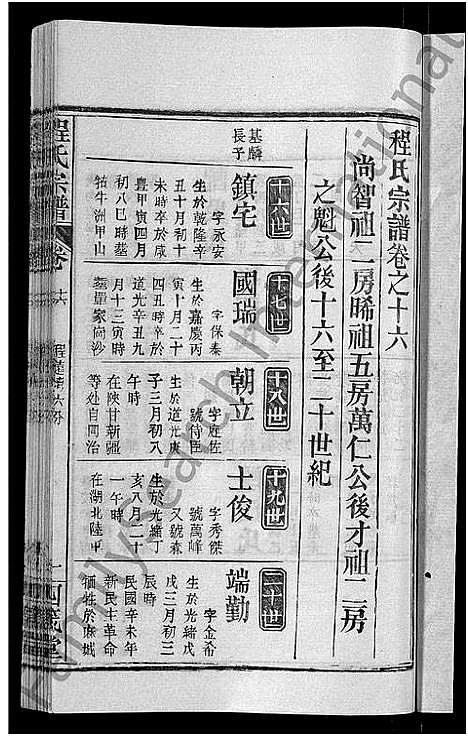 程氏宗譜卷之十六
尚智祖二房晞祖五房萬仁公後才祖二房
之魁公後十六至二十世紀
十六世
基麟
長子
鎮宅
字永安
生於乾隆辛
丑十月初十
未時卒於咸
豐甲寅四月
初八巳時塟
牯牛洲甲山
十七世
國瑞
字保泰
生於嘉慶丙
寅十月二十
四丑時卒於
道光辛丑九
月十三寅時
塟畢家衖沙
十八世
朝立
字廷佐
號侍臣
生於道光庚
子三月初八
午時
在陝甘新疆
等处自同治
十九世
士俊
字秀傑
號萬峰
又號森
生於光緒丁
亥八月二十
一午時
在湖北陸軍
二十世
端勤
字金希
生於光緒戊
戌三月初三
辰時
民國辛未年
新民主革命
犧牲於麻城
程氏宗譜
卷十六
FamilySearch International